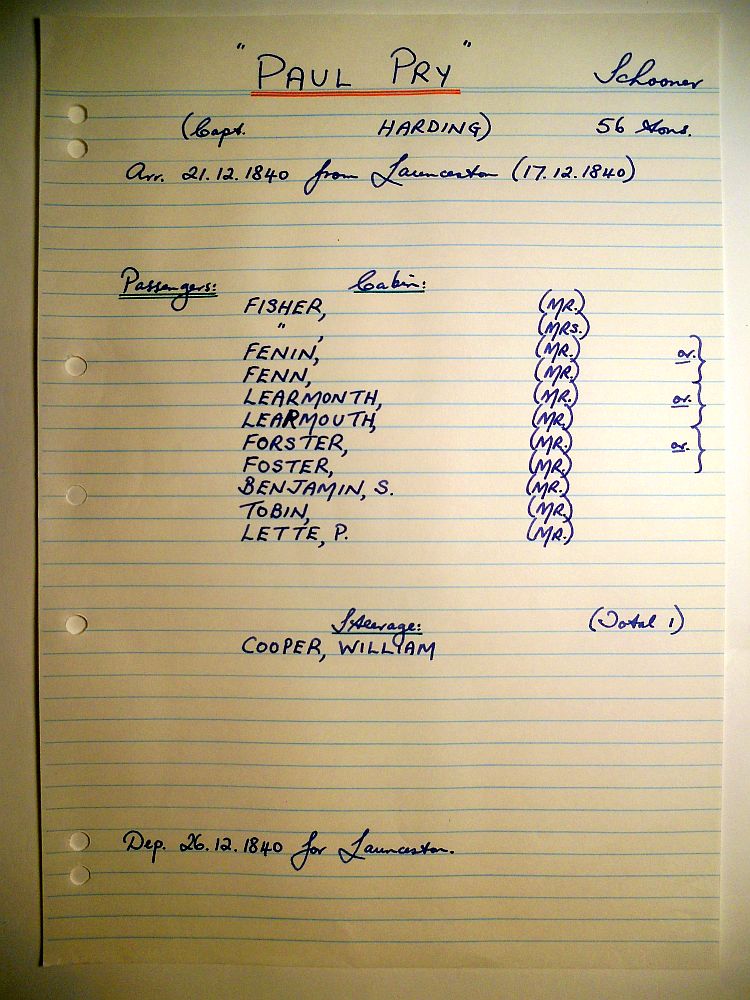 "PAUL PRY" Schooner
(Capt. HARDING) 56 tons.
Arr. 21.12.1840 from Launceston (17.12.1840)
Passengers: Cabin:
FISHER, (MR.)
" , (MRS.)
FENIN, (MR.) or.
FENN, (MR.)
LEARMONTH, (MR.) or.
LEARMOUTH, (MR.)
FORSTER, (MR.) or.
FOSTER, (MR.)
BENJAMIN, S. (MR.)
TOBIN, (MR.)
LETTE, P. (MR.)
Steerage: (Total 1)
COOPER, WILLIAM
Dep. 26.12.1840 for Launceston.